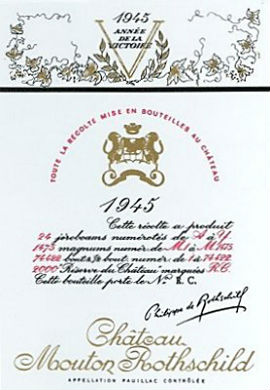 1945
ANNÉE
DE LA
VICTOIRE
V
TOUTE LA RÉCOLTE MISE EN BOUTEILLES AU CHÂTEAU
1945
Cette récolte a produit
24 jéroboams numérotés de A à Y.
1475 magnums numér. de M1 à M1475
74422 bout.& ½ bout. numér. de 1 à 74422
2000 "Réserve du Château" marquées R.C.
Cette bouteille porte le Nº R.C.
Philippe de Rothschild
Château
Mouton Rothschild
APPELLATION PAUILLAC CONTRÔLÉE